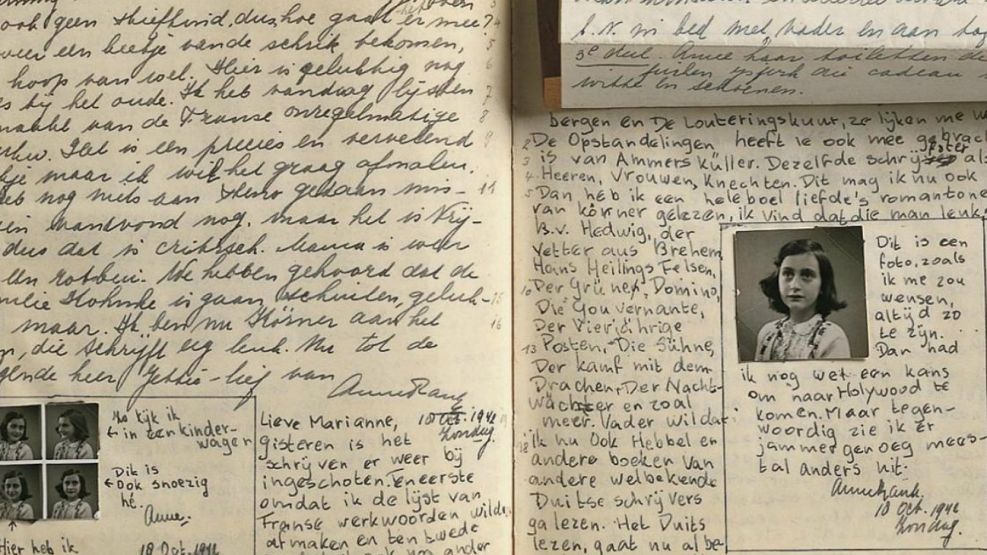 ook geen
hoe gaat er mee
weer een beetje van de schrik bekomen,
hoop van wel. Hier is gelukkig nog
bij het oude. Ik heb vandaag lijsten
van de Franse onregelmatige
Het is een precies en vervelend
maar ik wil het graag afmaken.
nog niets aan Steno gedaan mis-
in vanavond nog, maar het is Vrij-
dus dat is critisch. Mama is weer
We hebben gehoord dat de
is gaan schuilen, geluk-
maar. Ik ben nu Körner aan het
n, die schrijft erg leuk. Nu tot de
gende keer Jettie-lief van
Anne Frank
Zo kijk ik
← in een kinder-
wagen
Dit is
← ook snoezig
hé.
Anne.
Hier heb ik
18 Oct. 1942
Lieve Marianne,
10 Oct. 1942
Zondag.
gisteren is het
schrijven er weer bij
ingeschoten. Eneerste
omdat ik de lijst van
Franse werkwoorden wilde
afmaken en ten twede
ander
in bed met vader en aan
3e deel. Anne haar
cadeau
witte en schoenen.
bergen en De Louteringskuur, ze lijken me
2 De Opstandelingen heeft ie ook mee gebrach
3 is van Ammers küller. Dezelfde schrijfster als
4 Heeren, Vrouwen, Knechten. Dit mag ik nu ook
5 Dan heb ik een heleboel liefde's romantone
van körner gelezen, ik vind dat die man leuk
B.v. Hedwig, der
Vetter aus Brehem,
Hans Heilings Felsen,
10 Der Grüne, Domino,
Die Gouvernante,
Der Vierjährige
13 Posten, Die Sühne,
Der kamf mit dem
Drachen, Der Nacht-
wächter en zoal
meer. Vader wil dat
18 ik nu Ook Hebbel en
andere boeken Van
andere welbekende
Duitse schrijvers
ga lezen. Het Duits
lezen, gaat nu al be-
Dit is een
foto, zoals
ik me zou
wensen,
altijd zo
te zijn.
Dan had
ik nog wel een kans
om naar Holywood te
komen. Maar tegen-
woordig zie ik er
jammer genoeg mees-
tal anders uit.
Anne Frank.
10 Oct. 1942
Zondag.